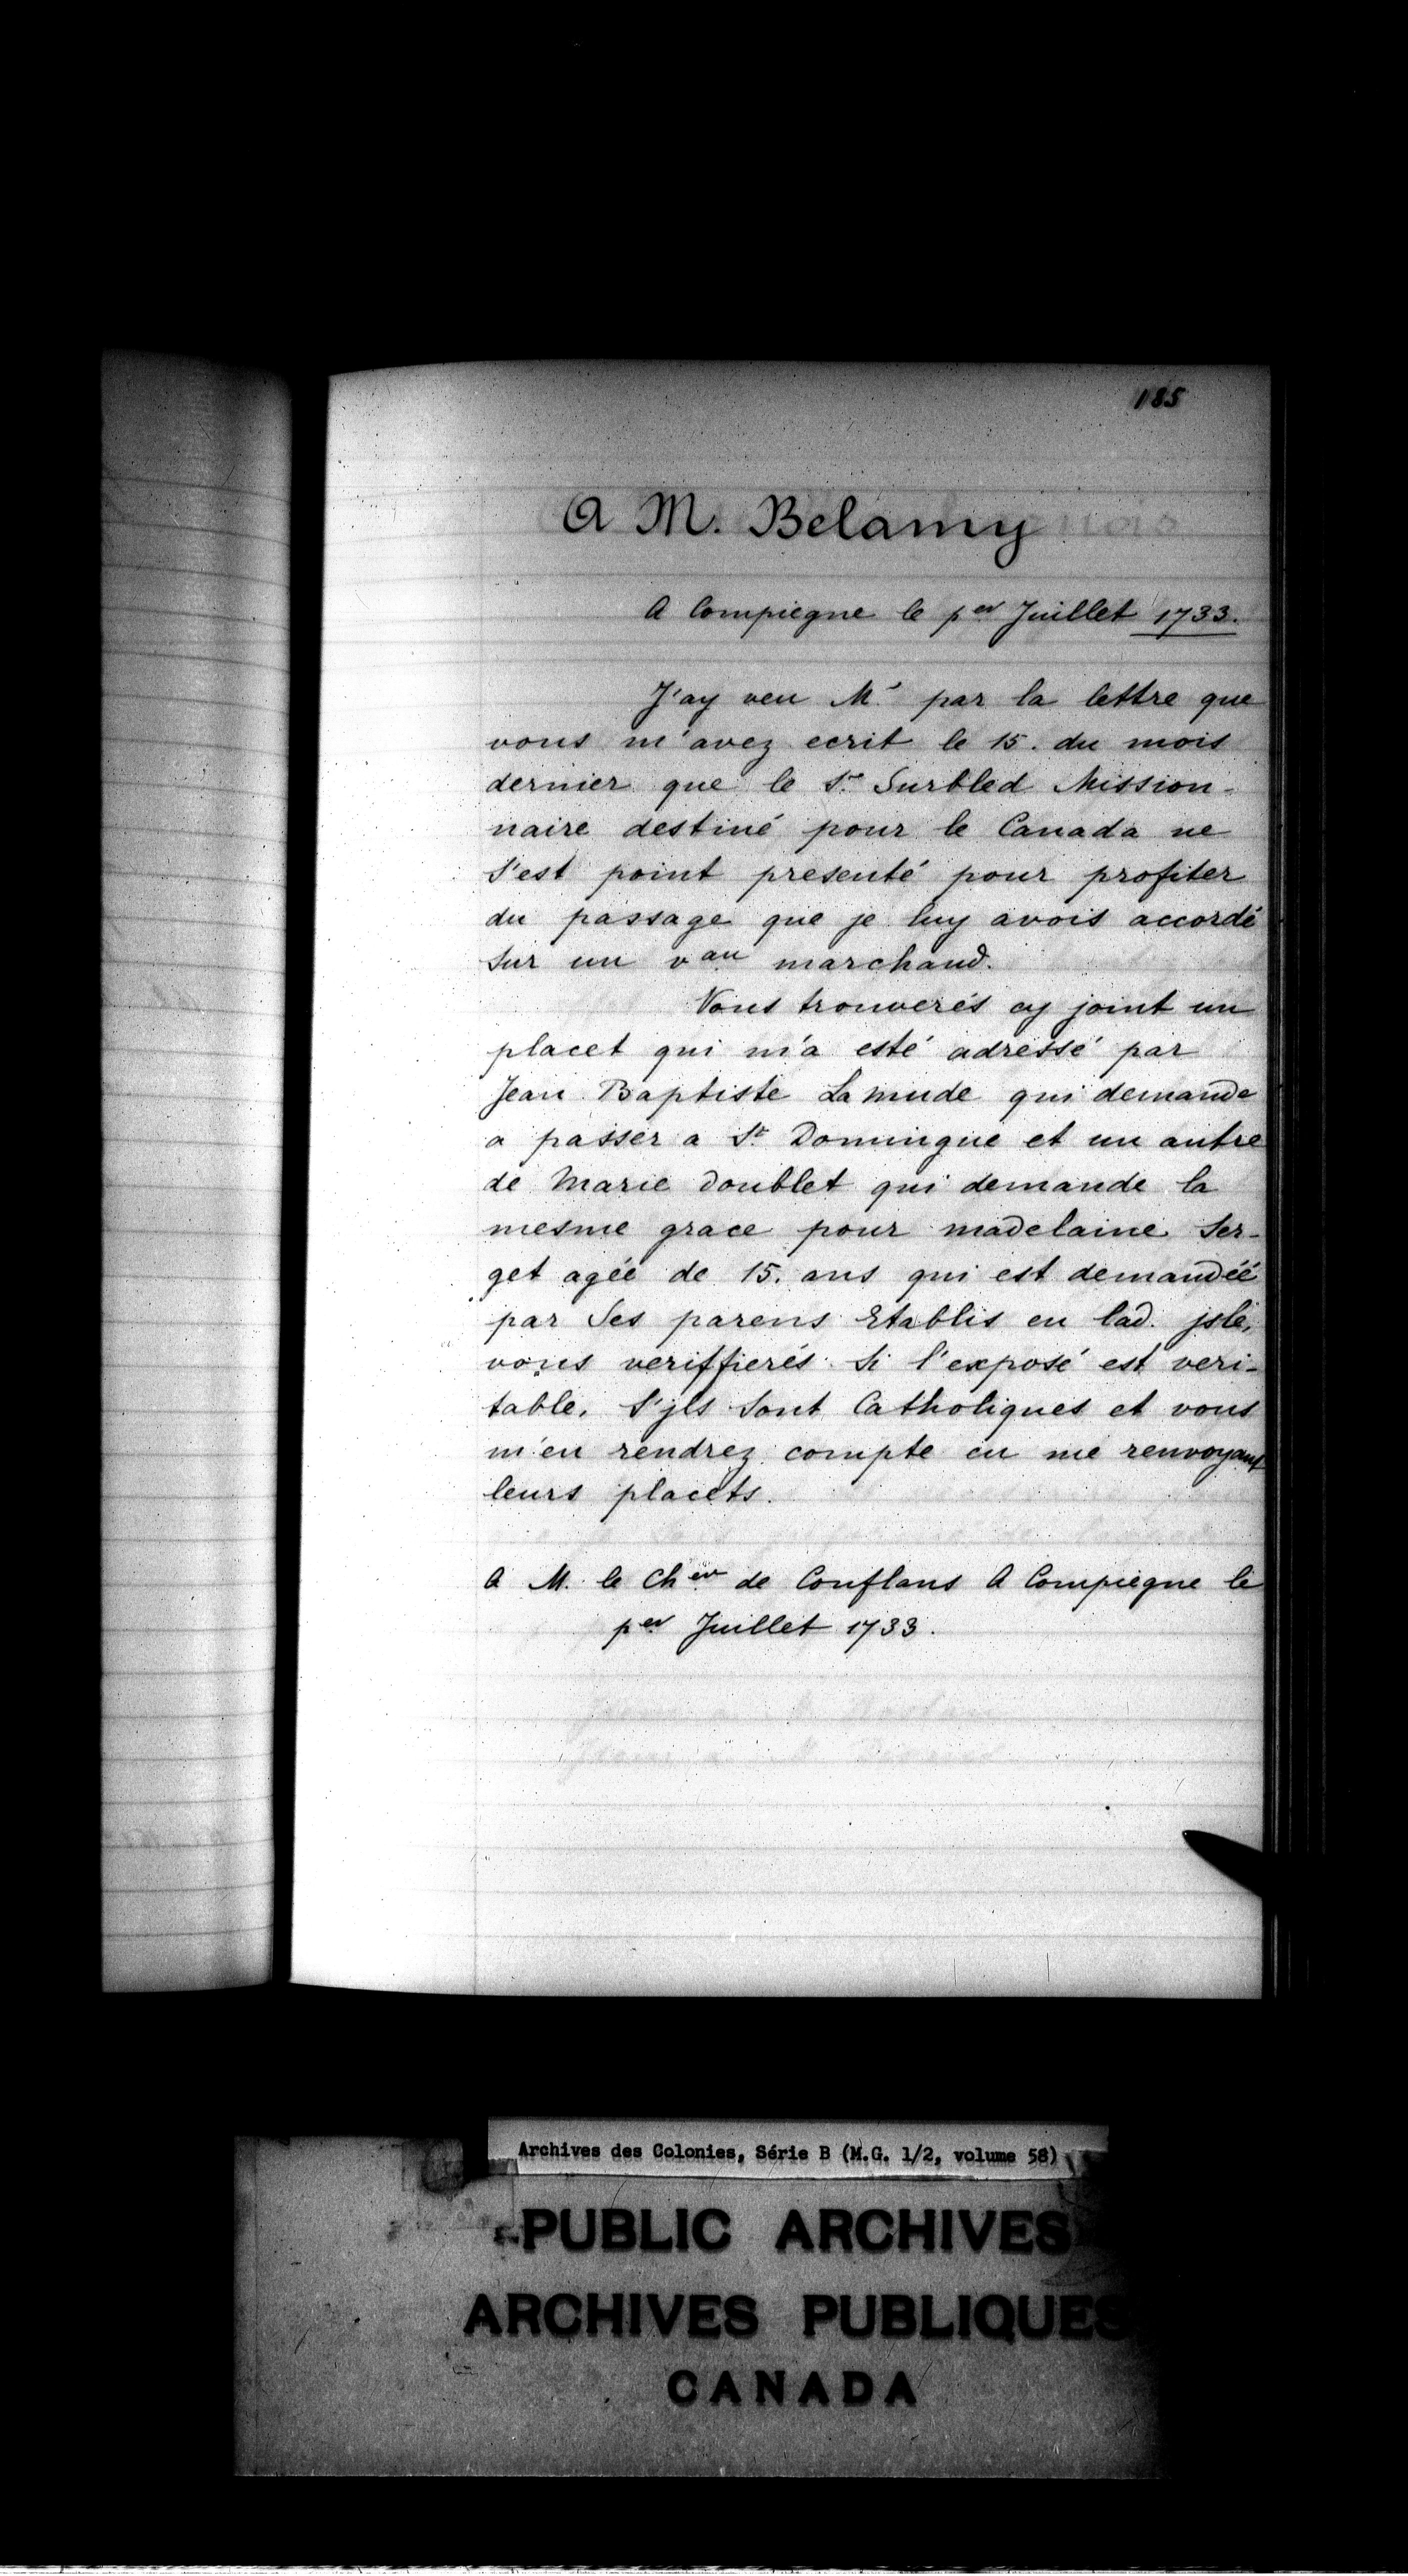 185
A M. Belamy
A Compiegne le per Juillet 1733.
J'ay veu Mr par la lettre que
vous m'avez ecrit le 15. du mois
dernier que le Sr. Surbled Mission-
naire destiné pour le Canada ne
s'est point presenté pour profiter
du passage que je luy avois accordé
sur un vau marchand.
Vous trouverés cy joint un
placet qui m'a esté adressé par
Jean Baptiste Lamude qui demande
a passer a St Domingue et un autre
de Marie Doublet qui demande la
mesme grace pour madelaine Ser-
get agée de 15. ans qui est demandée
par Ses parens Etablis en lad. jsle,
vous veriffierés Si l'exposé est veri-
table, S'jls sont Catholiques et vous
m'en rendrez compte en me renvoyant
leurs placets.
A M. le Cher de Conflans A Compiegne le
per Juillet 1733.
Archives des Colonies, Série B (M.G. 1/2, volume 58)
PUBLIC ARCHIVES
ARCHIVES PUBLIQUES
CANADA